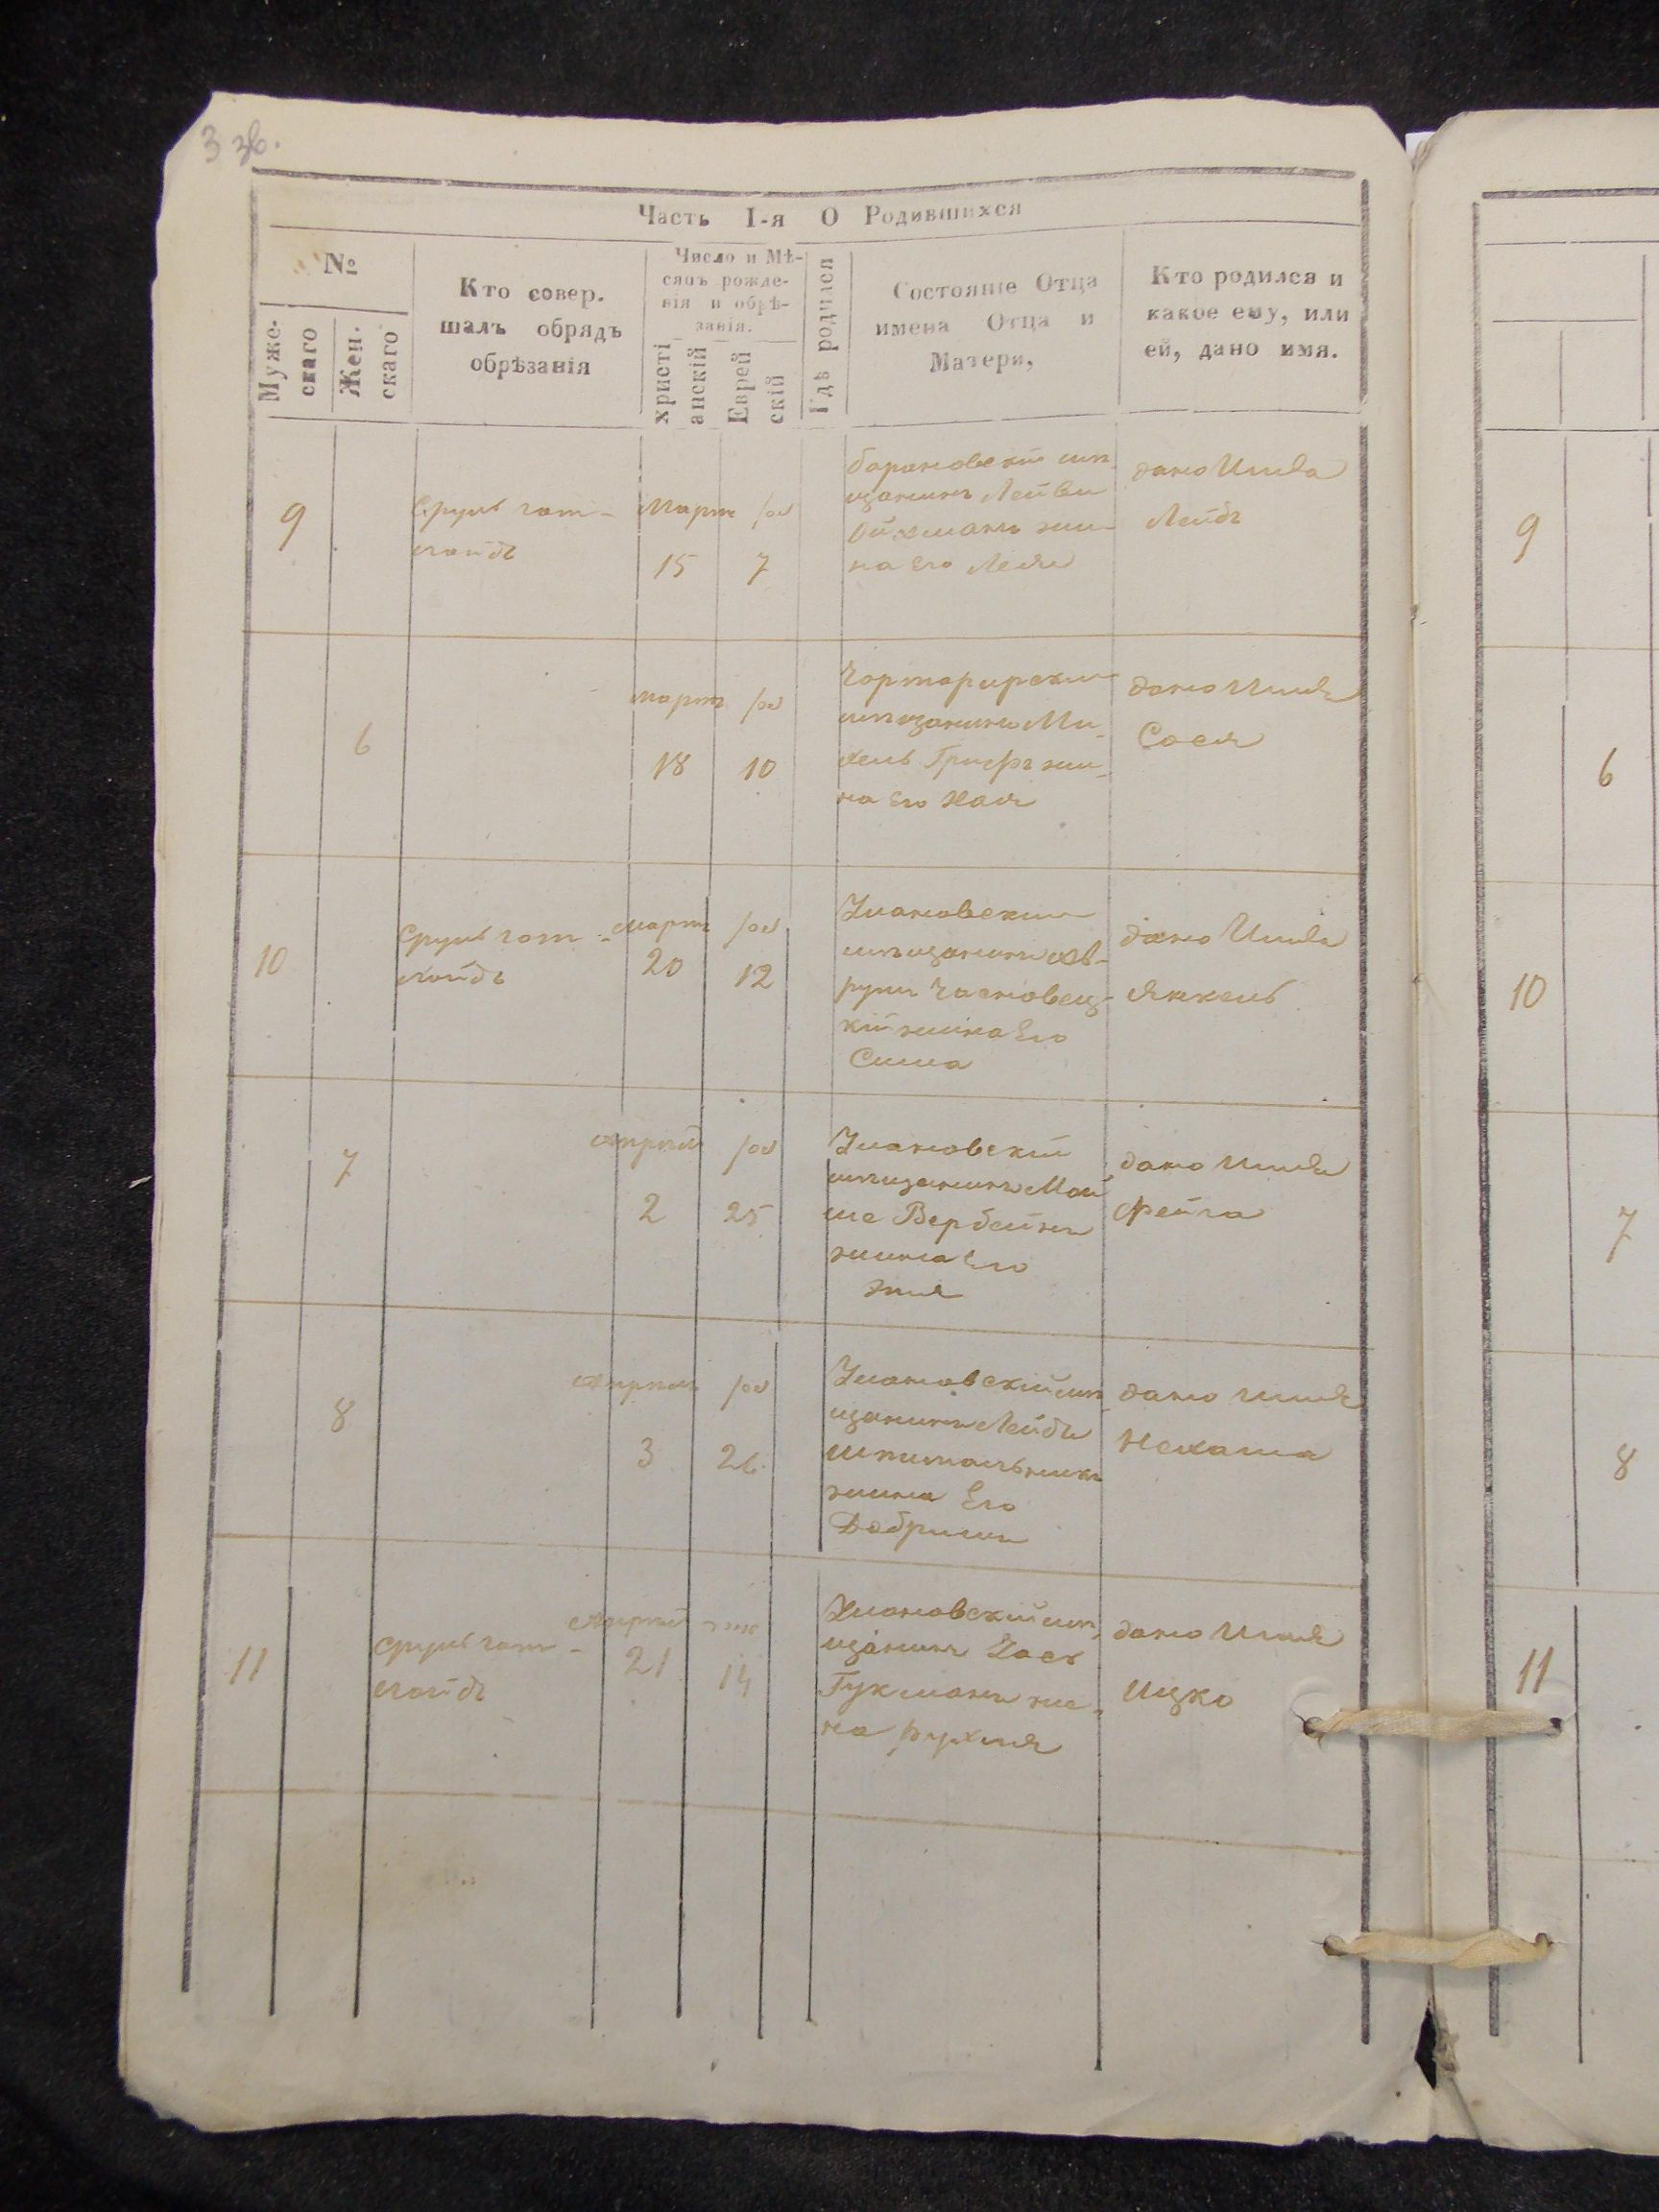 3 зв.
Часть I-я О Родившихся
№
Муже-
скаго
Жен.
скаго
Кто совер.
шалъ обрядъ
обрѣзанія
Число и Мѣ-
сяцъ рожде-
нія и обрѣ-
занія.
христі
анскій
Еврей
скій
Гдѣ родился
Состояніе Отца
имена Отца и
Матери,
Кто родился и
какое ему, или
ей, дано имя.
9
Сруль
Мартъ
15
7
щанинъ Лейви
на Его Лея
дано Имя
Лейбъ
6
мартъ
18
10
мещанинъ Ми-
хель
на Его Хая
дано Имя
Сося
10
Сруль
мартъ
20
12
Умановскій
мещанинъ Ав-
румъ
кій жина Его
Сима
дано Имя
Янкель
7
апрель
2
25
Умановскій
мещанинъ Мой
ше Вербейнъ
жина Его
дано имя
Фейга
8
апрель
3
26
Умановскій ме-
щанинъ Лейбъ
Шпитальникъ
жина Его
Добришъ
дано имя
Нехама
11
сруль
Апрель
21
14
Умановскій ме-
щанинъ
Гукманъ же-
на рухля
дано Имя
Ицко
9
6
10
7
8
11